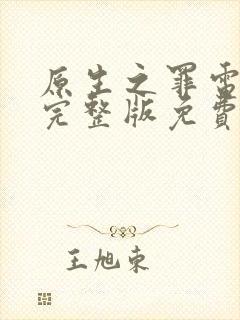 原生之罪雷
完整版免费
王旭东